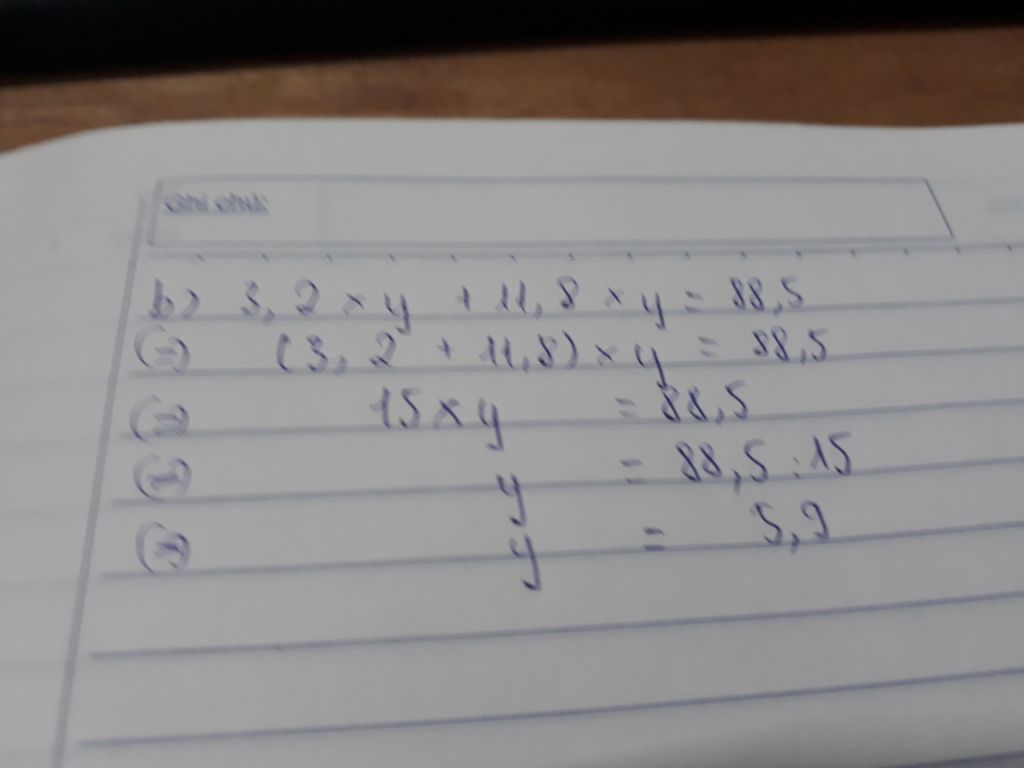 Ghi chú:
b) 3,2 × y + 11,8 × y = 88,5
(=) (3,2 + 11,8) × y = 88,5
(=) 15 × y = 88,5
(=) y = 88,5 : 15
(=) y = 5,9